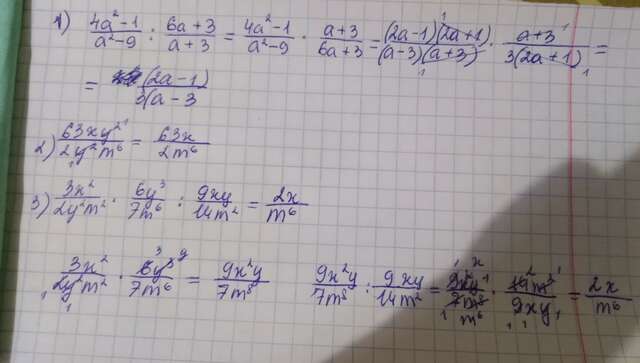 1) (4a²-1)/(a²-9) : (6a+3)/(a+3) = (4a²-1)/(a²-9) · (a+3)/(6a+3) = (2a-1)(2a+1)/(a-3)(a+3) · (a+3)/3(2a+1) =
= (2a-1)/3(a-3
2) 63xy²/2y²m⁶ = 63x/2m⁶
3) 3x²/2y²m² · 6y³/7m⁶ : 9xy/14m² = 2x/m⁶
3x²/2y²m² · 6y³/7m⁶ = 9x²y/7m⁸ 9x²y/7m⁸ : 9xy/14m² = 9x²y/7m⁸ · 14m²/9xy = 2x/m⁶